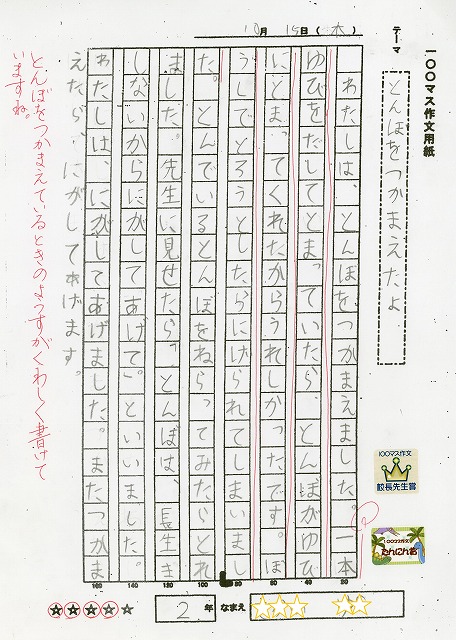 一〇〇マス作文用紙
テーマ
とんぼをつかまえたよ
10月15日(木)
わたしは、とんぼをつかまえました。一本
ゆびをだしてとまっていたら、とんぼがゆび
にとまってくれたからうれしかったです。ぼ
うしでとろうとしたらにげられてしまいまし
た。とんでいるとんぼをねらってみたらとれ
ました。先生に見せたら、「とんぼは、長生き
しないからにがしてあげて。」といいました。
わたしは、にがしてあげました。またつかま
えたら、にがしてあげます。
とんぼをつかまえているときのようすがくわしく書けて
いますね。
100マス作文
校長先生賞
100マス作文
たんにん名
20
40
60
80
100
120
140
160
2年 なまえ